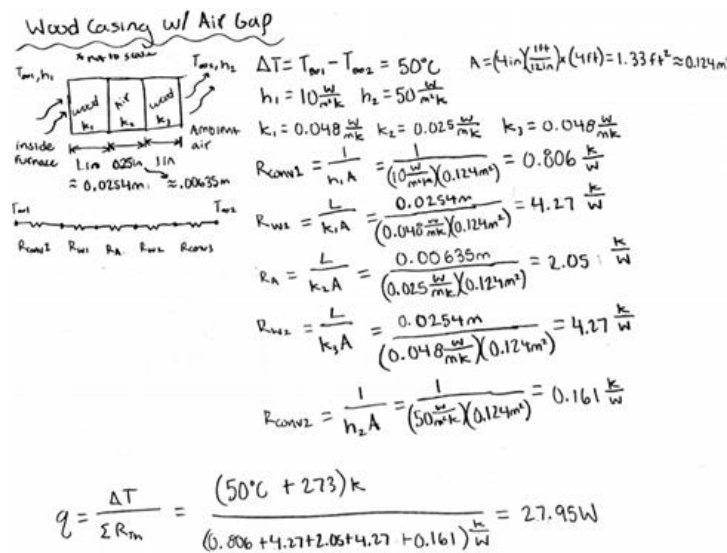 Wood Casing w/ Air Gap
* not to scale
T∞1, h1
T∞2, h2
wood k1
air k2
wood k3
inside furnace
Ambient air
1 in 0.25in 1in
≈ 0.0254m ≈ .00635m
T∞1 T∞2
Rconv1 Rw1 RA Rw2 Rconv2
ΔT = T∞1 - T∞2 = 50°C A = (4in)(1ft/12in)x(4ft) = 1.33ft² ≈ 0.124m
h1 = 10 W/m²k h2 = 50 W/m²k
k1 = 0.048 W/mk k2 = 0.025 W/mk k3 = 0.048 W/mk
Rconv1 = 1/h1A = 1/(10 W/m²k)(0.124m²) = 0.806 k/W
Rw1 = L/k1A = 0.0254m/(0.048 W/mk)(0.124m²) = 4.27 k/W
RA = L/k2A = 0.00635m/(0.025 W/mk)(0.124m²) = 2.05 k/W
Rw2 = L/k3A = 0.0254m/(0.048 W/mk)(0.124m²) = 4.27 k/W
Rconv2 = 1/h2A = 1/(50 W/m²k)(0.124m²) = 0.161 k/W
q = ΔT/ΣRTh = (50°C + 273)k/(0.806+4.27+2.05+4.27+0.161) k/W = 27.95W